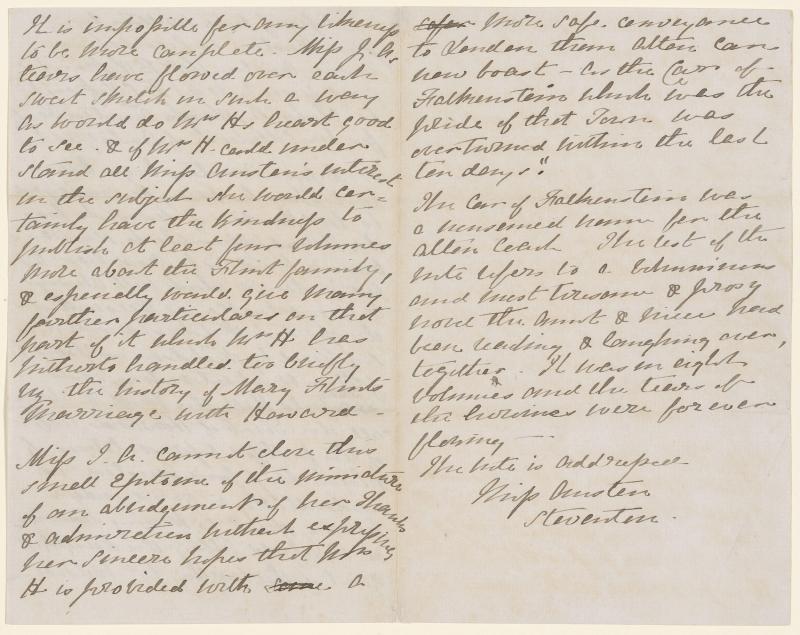 It is impossible for any likeness
to be more complete. Miss J. A.
tears have flowed over each
sweet sketch in such a way
as would do Mrs Hs heart good
to see. & if Mrs H. could under
stand all Miss Austen's interest
in the subject she would cer=
tainly have the kindness to
publish at least four volumes
more about the Flint family,
& especially would give many
farther particulars on that
part of it which Mrs H has
hitherto handled too briefly
viz. the history of Mary Flints
Marriage with Howard -
Miss J. A. cannot close this
small epitome of the miniature
of an abridgement of her thanks
& admiration without expressing
her sincere hopes that Mrs
H is provided with some a
safer more safe conveyance
to London than Alton can
now boast - as the Car of
Falkenstein which was the
pride of that Town was
overturned within the last
ten days".
The Car of Falkenstein was
a nursened name for the
Alton Coach The rest of the
note refers to a voluminous
and most tiresome & prosy
novel the Aunt & niece had
been reading & laughing over,
together. It was in eight
volumes and the tears of
the heroines were for ever
flowing -
The note is addressed
Miss Austen
Steventon.